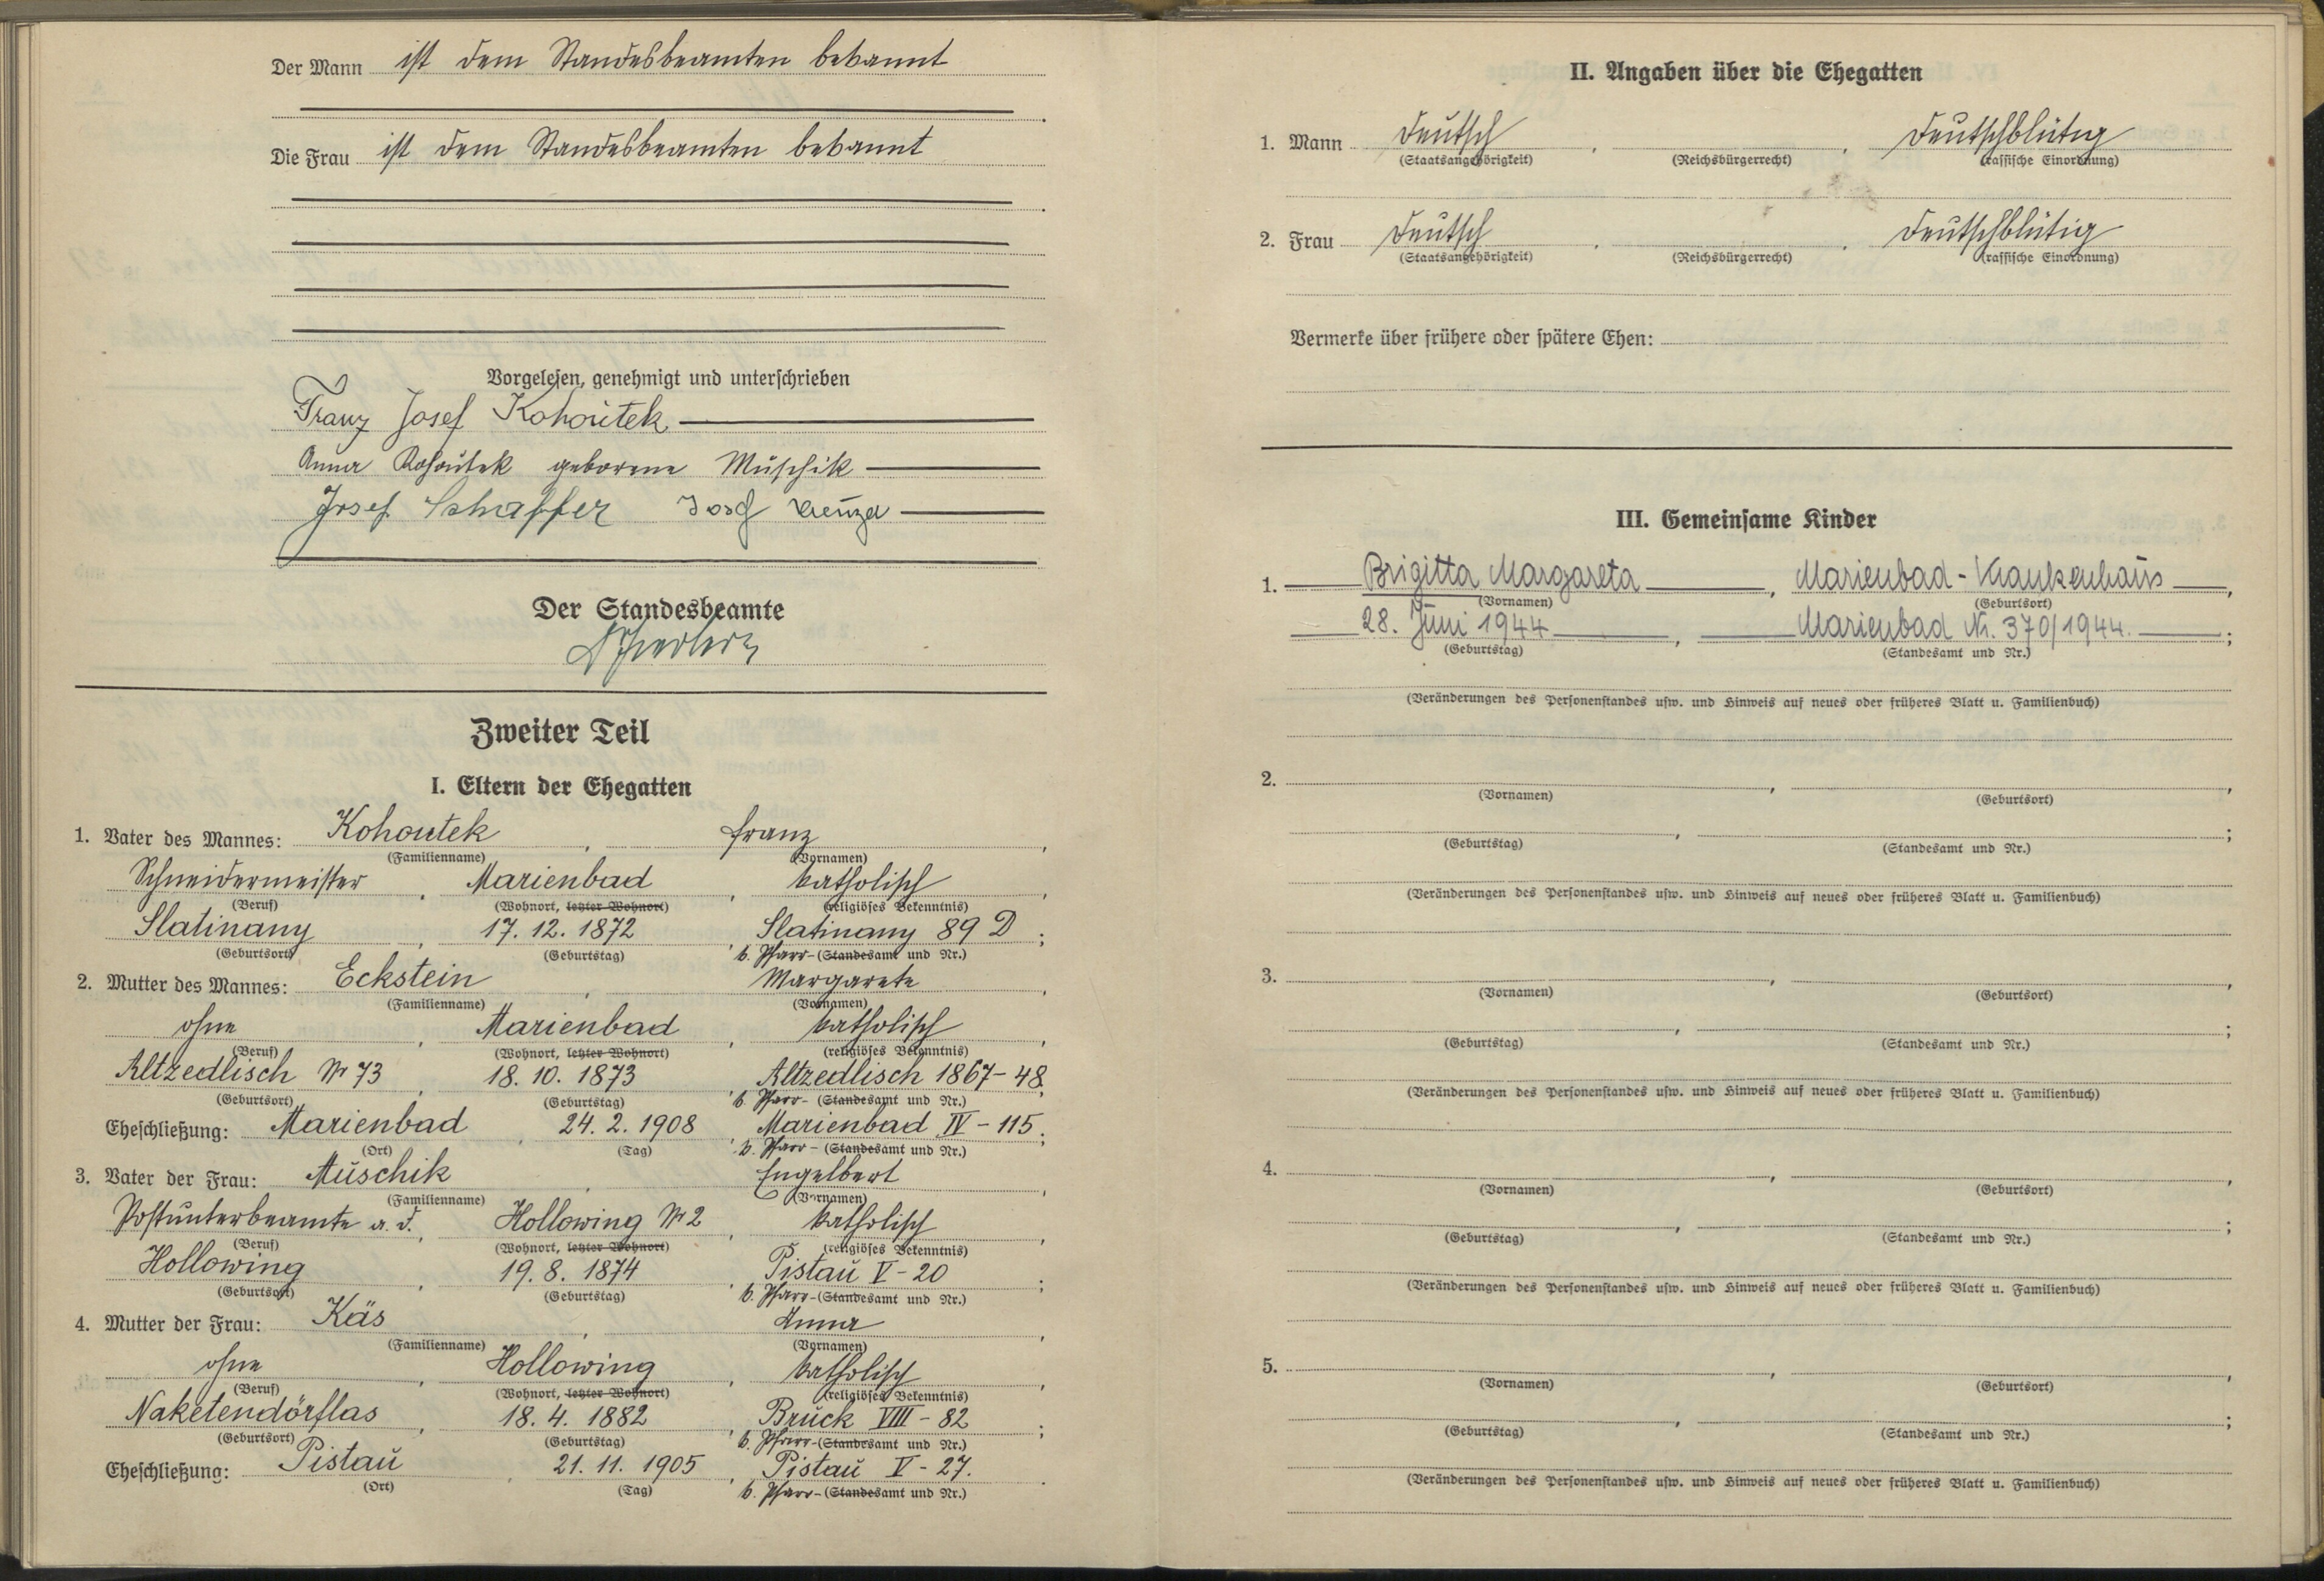 Der Mann ist dem Standesbeamten bekannt
Die Frau ist dem Standesbeamten bekannt
Vorgelesen, genehmigt und unterschrieben
Franz Josef Kohoutek
Anna Kohoutek geborene Muschik
Josef Schaffer Josef
Der Standesbeamte
Zweiter Teil
I. Eltern der Ehegatten
1. Vater des Mannes: Kohoutek, Franz,
(Familienname) (Vornamen)
Schneidermeister, Marienbad, katholisch,
(Beruf) (Wohnort, letzter Wohnort) (religiöses Bekenntnis)
Slatinany, 17. 12. 1872, Slatinany 89 D;
(Geburtsort) (Geburtstag) k. Pfarr-(Standesamt und Nr.)
2. Mutter des Mannes: Eckstein, Margarete,
(Familienname) (Vornamen)
ohne, Marienbad, katholisch,
(Beruf) (Wohnort, letzter Wohnort) (religiöses Bekenntnis)
Altzedlisch Nr 73, 18. 10. 1873, Altzedlisch 1867-48;
(Geburtsort) (Geburtstag) k. Pfarr-(Standesamt und Nr.)
Eheschließung: Marienbad, 24. 2. 1908, Marienbad IV-115;
(Ort) (Tag) k. Pfarr-(Standesamt und Nr.)
3. Vater der Frau: Muschik, Engelbert,
(Familienname) (Vornamen)
Postunterbeamte a. d., Hollowing Nr 2, katholisch,
(Beruf) (Wohnort, letzter Wohnort) (religiöses Bekenntnis)
Hollowing, 19. 8. 1874, Pistau V-20;
(Geburtsort) (Geburtstag) k. Pfarr-(Standesamt und Nr.)
4. Mutter der Frau: Käs, Anna,
(Familienname) (Vornamen)
ohne, Hollowing, katholisch,
(Beruf) (Wohnort, letzter Wohnort) (religiöses Bekenntnis)
Naketendörflas, 18. 4. 1882, Bruck VIII-82;
(Geburtsort) (Geburtstag) k. Pfarr-(Standesamt und Nr.)
Eheschließung: Pistau, 21. 11. 1905, Pistau V-27.
(Ort) (Tag) k. Pfarr-(Standesamt und Nr.)
II. Angaben über die Ehegatten
1. Mann deutsch, , deutschblütig
(Staatsangehörigkeit) (Reichsbürgerrecht) (rassische Einordnung)
2. Frau deutsch, , deutschblütig
(Staatsangehörigkeit) (Reichsbürgerrecht) (rassische Einordnung)
Vermerke über frühere oder spätere Ehen:
III. Gemeinsame Kinder
1. Brigitta Margareta, Marienbad-Krankenhaus,
(Vornamen) (Geburtsort)
28. Juni 1944, Marienbad Nr. 370/1944.;
(Geburtstag) (Standesamt und Nr.)
(Veränderungen des Personenstandes usw. und Hinweis auf neues oder früheres Blatt u. Familienbuch)
2. , ,
(Vornamen) (Geburtsort)
, ;
(Geburtstag) (Standesamt und Nr.)
(Veränderungen des Personenstandes usw. und Hinweis auf neues oder früheres Blatt u. Familienbuch)
3. , ,
(Vornamen) (Geburtsort)
, ;
(Geburtstag) (Standesamt und Nr.)
(Veränderungen des Personenstandes usw. und Hinweis auf neues oder früheres Blatt u. Familienbuch)
4. , ,
(Vornamen) (Geburtsort)
, ;
(Geburtstag) (Standesamt und Nr.)
(Veränderungen des Personenstandes usw. und Hinweis auf neues oder früheres Blatt u. Familienbuch)
5. , ,
(Vornamen) (Geburtsort)
, ;
(Geburtstag) (Standesamt und Nr.)
(Veränderungen des Personenstandes usw. und Hinweis auf neues oder früheres Blatt u. Familienbuch)